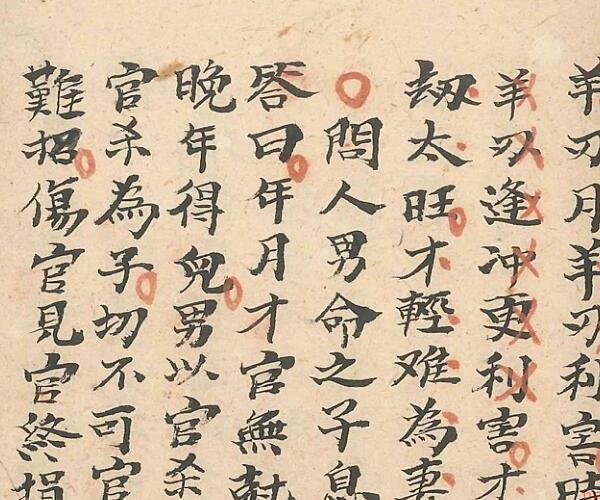 羊刃月羊刃利害時
羊刃逢冲更利害才
劫太旺才輕难為妻
問人男命之子息
答曰年月才官無
晚年得兒男以官杀
官杀為子切不可官
難招傷官見官終損